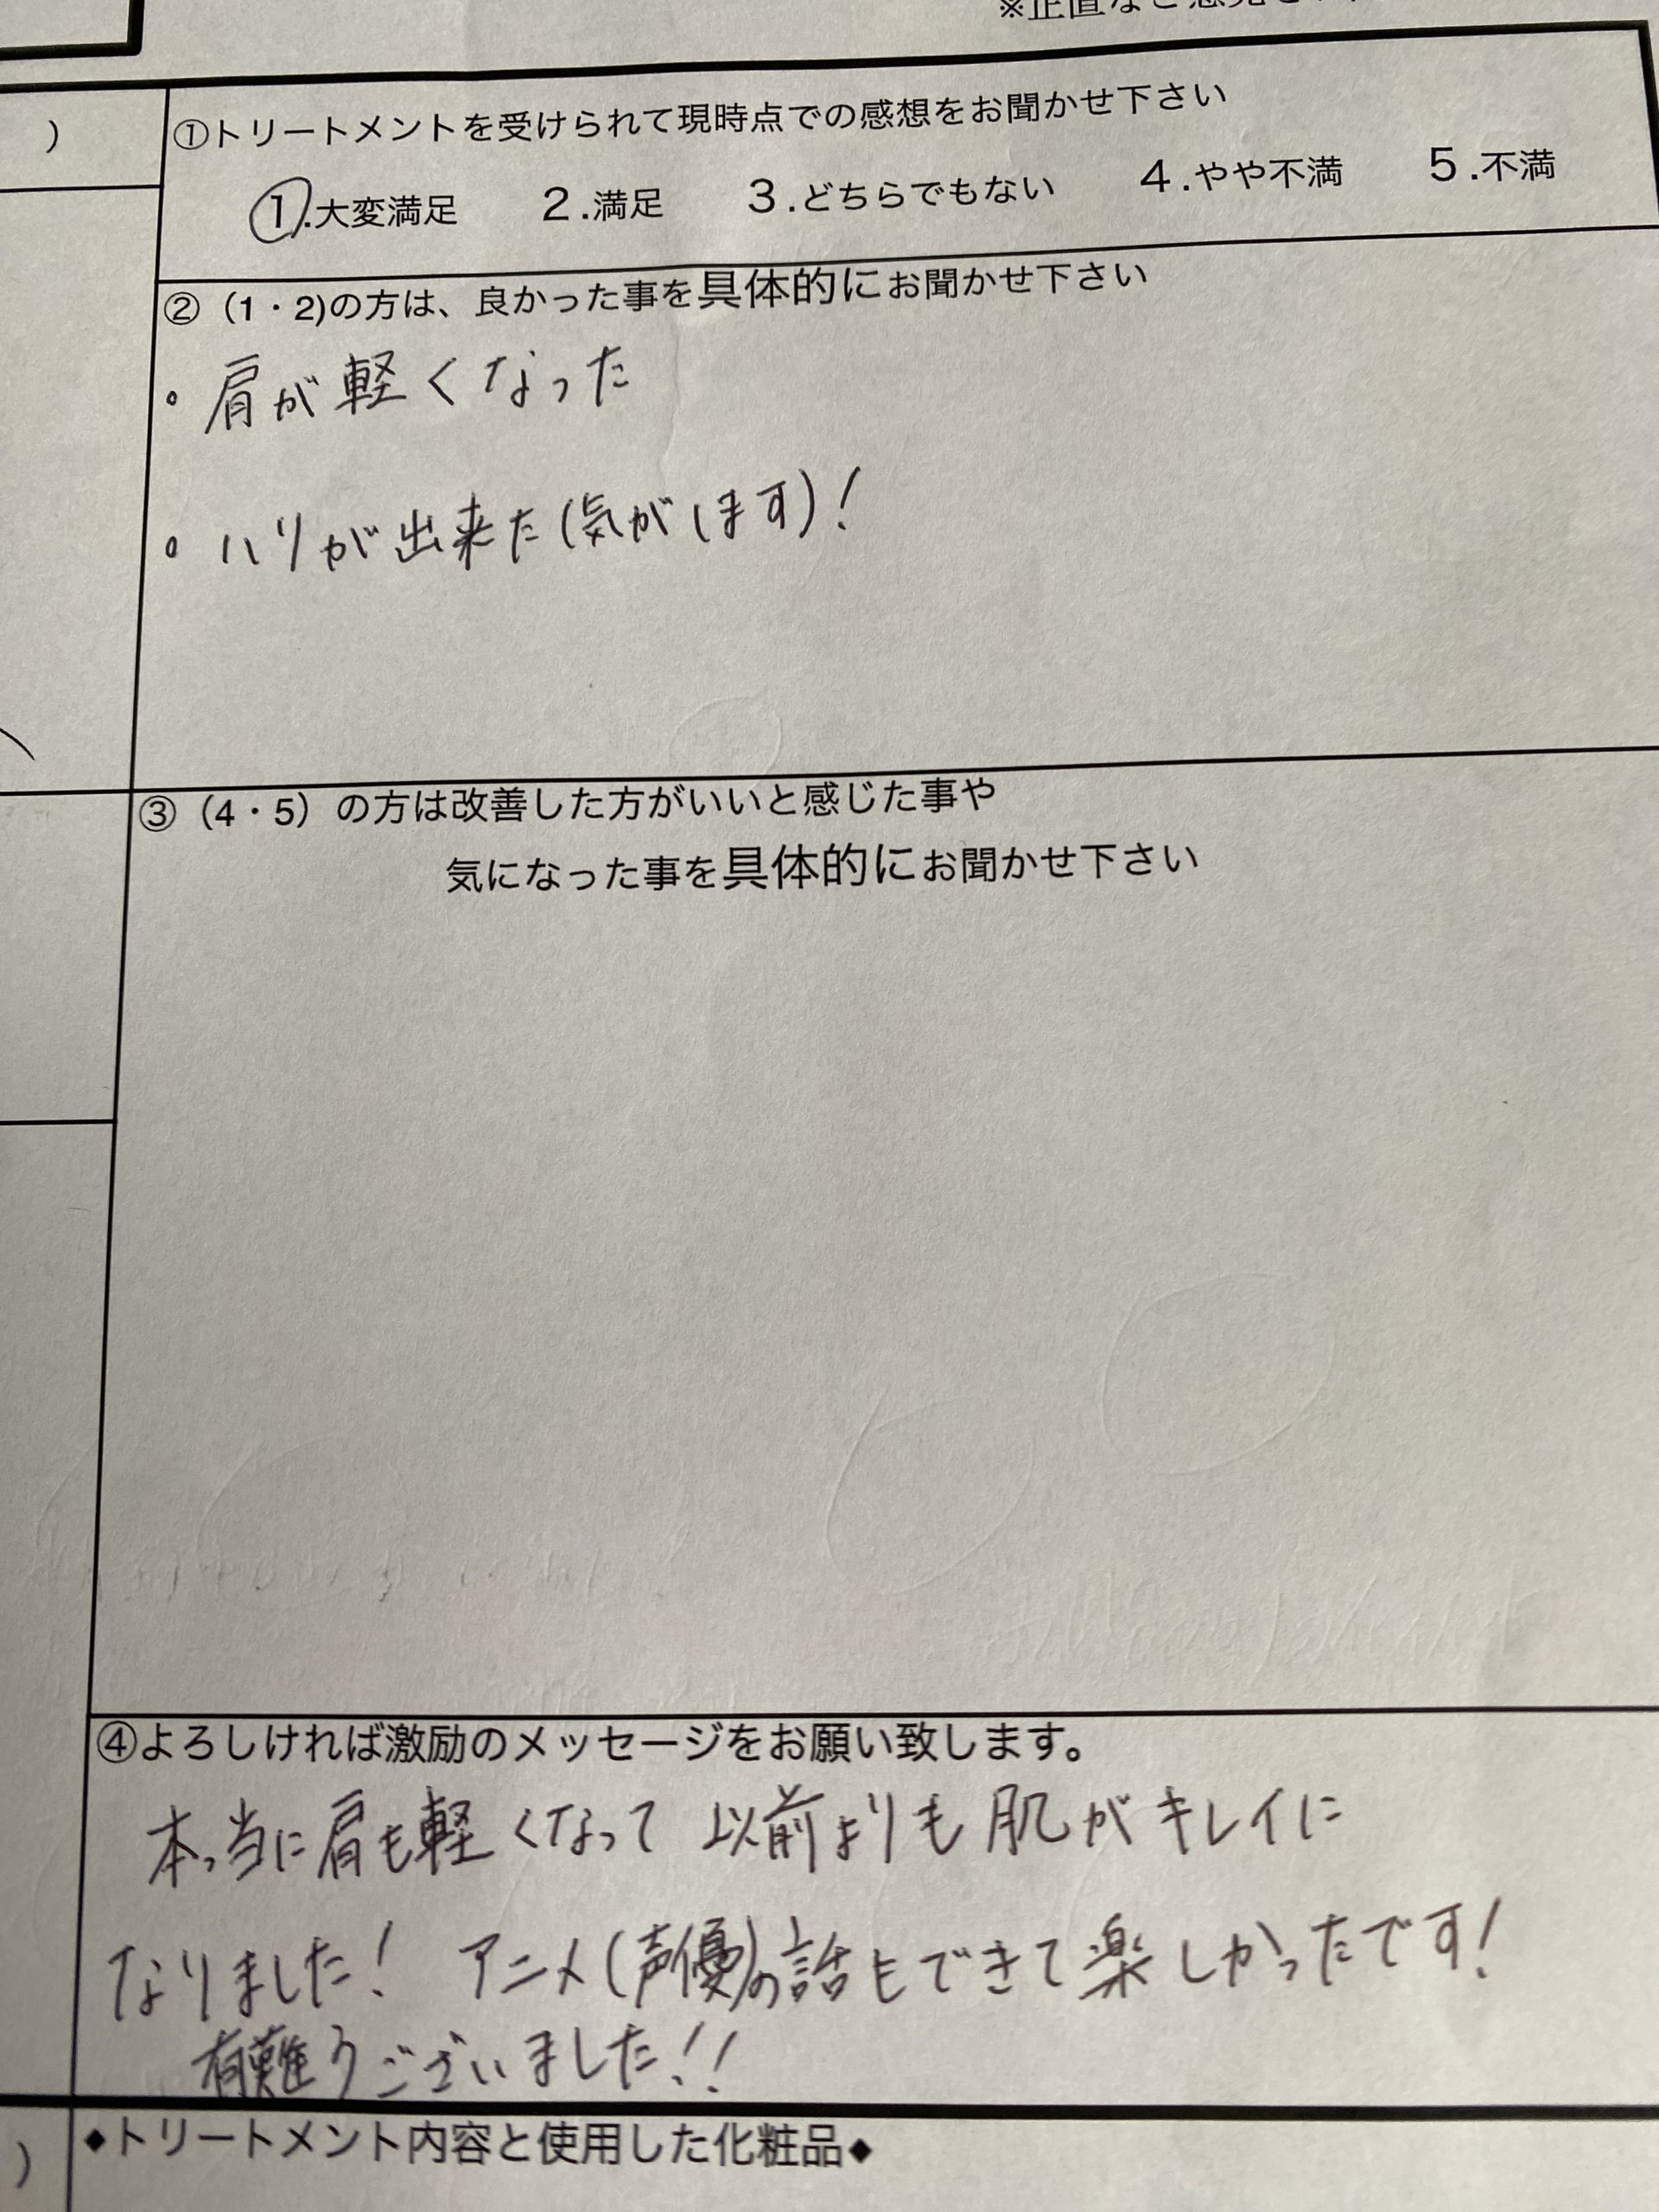 ※正直なご意見を
①トリートメントを受けられて現時点での感想をお聞かせ下さい
1.大変満足 2.満足 3.どちらでもない 4.やや不満 5.不満
②（1・2)の方は、良かった事を具体的にお聞かせ下さい
・肩が軽くなった
・ハリが出来た(気がします)!
③（4・5）の方は改善した方がいいと感じた事や
気になった事を具体的にお聞かせ下さい
④よろしければ激励のメッセージをお願い致します。
本当に肩も軽くなって 以前よりも肌がキレイに
なりました! アニメ(声優)の話もできて楽しかったです!
有難うございました!!
) ◆トリートメント内容と使用した化粧品◆